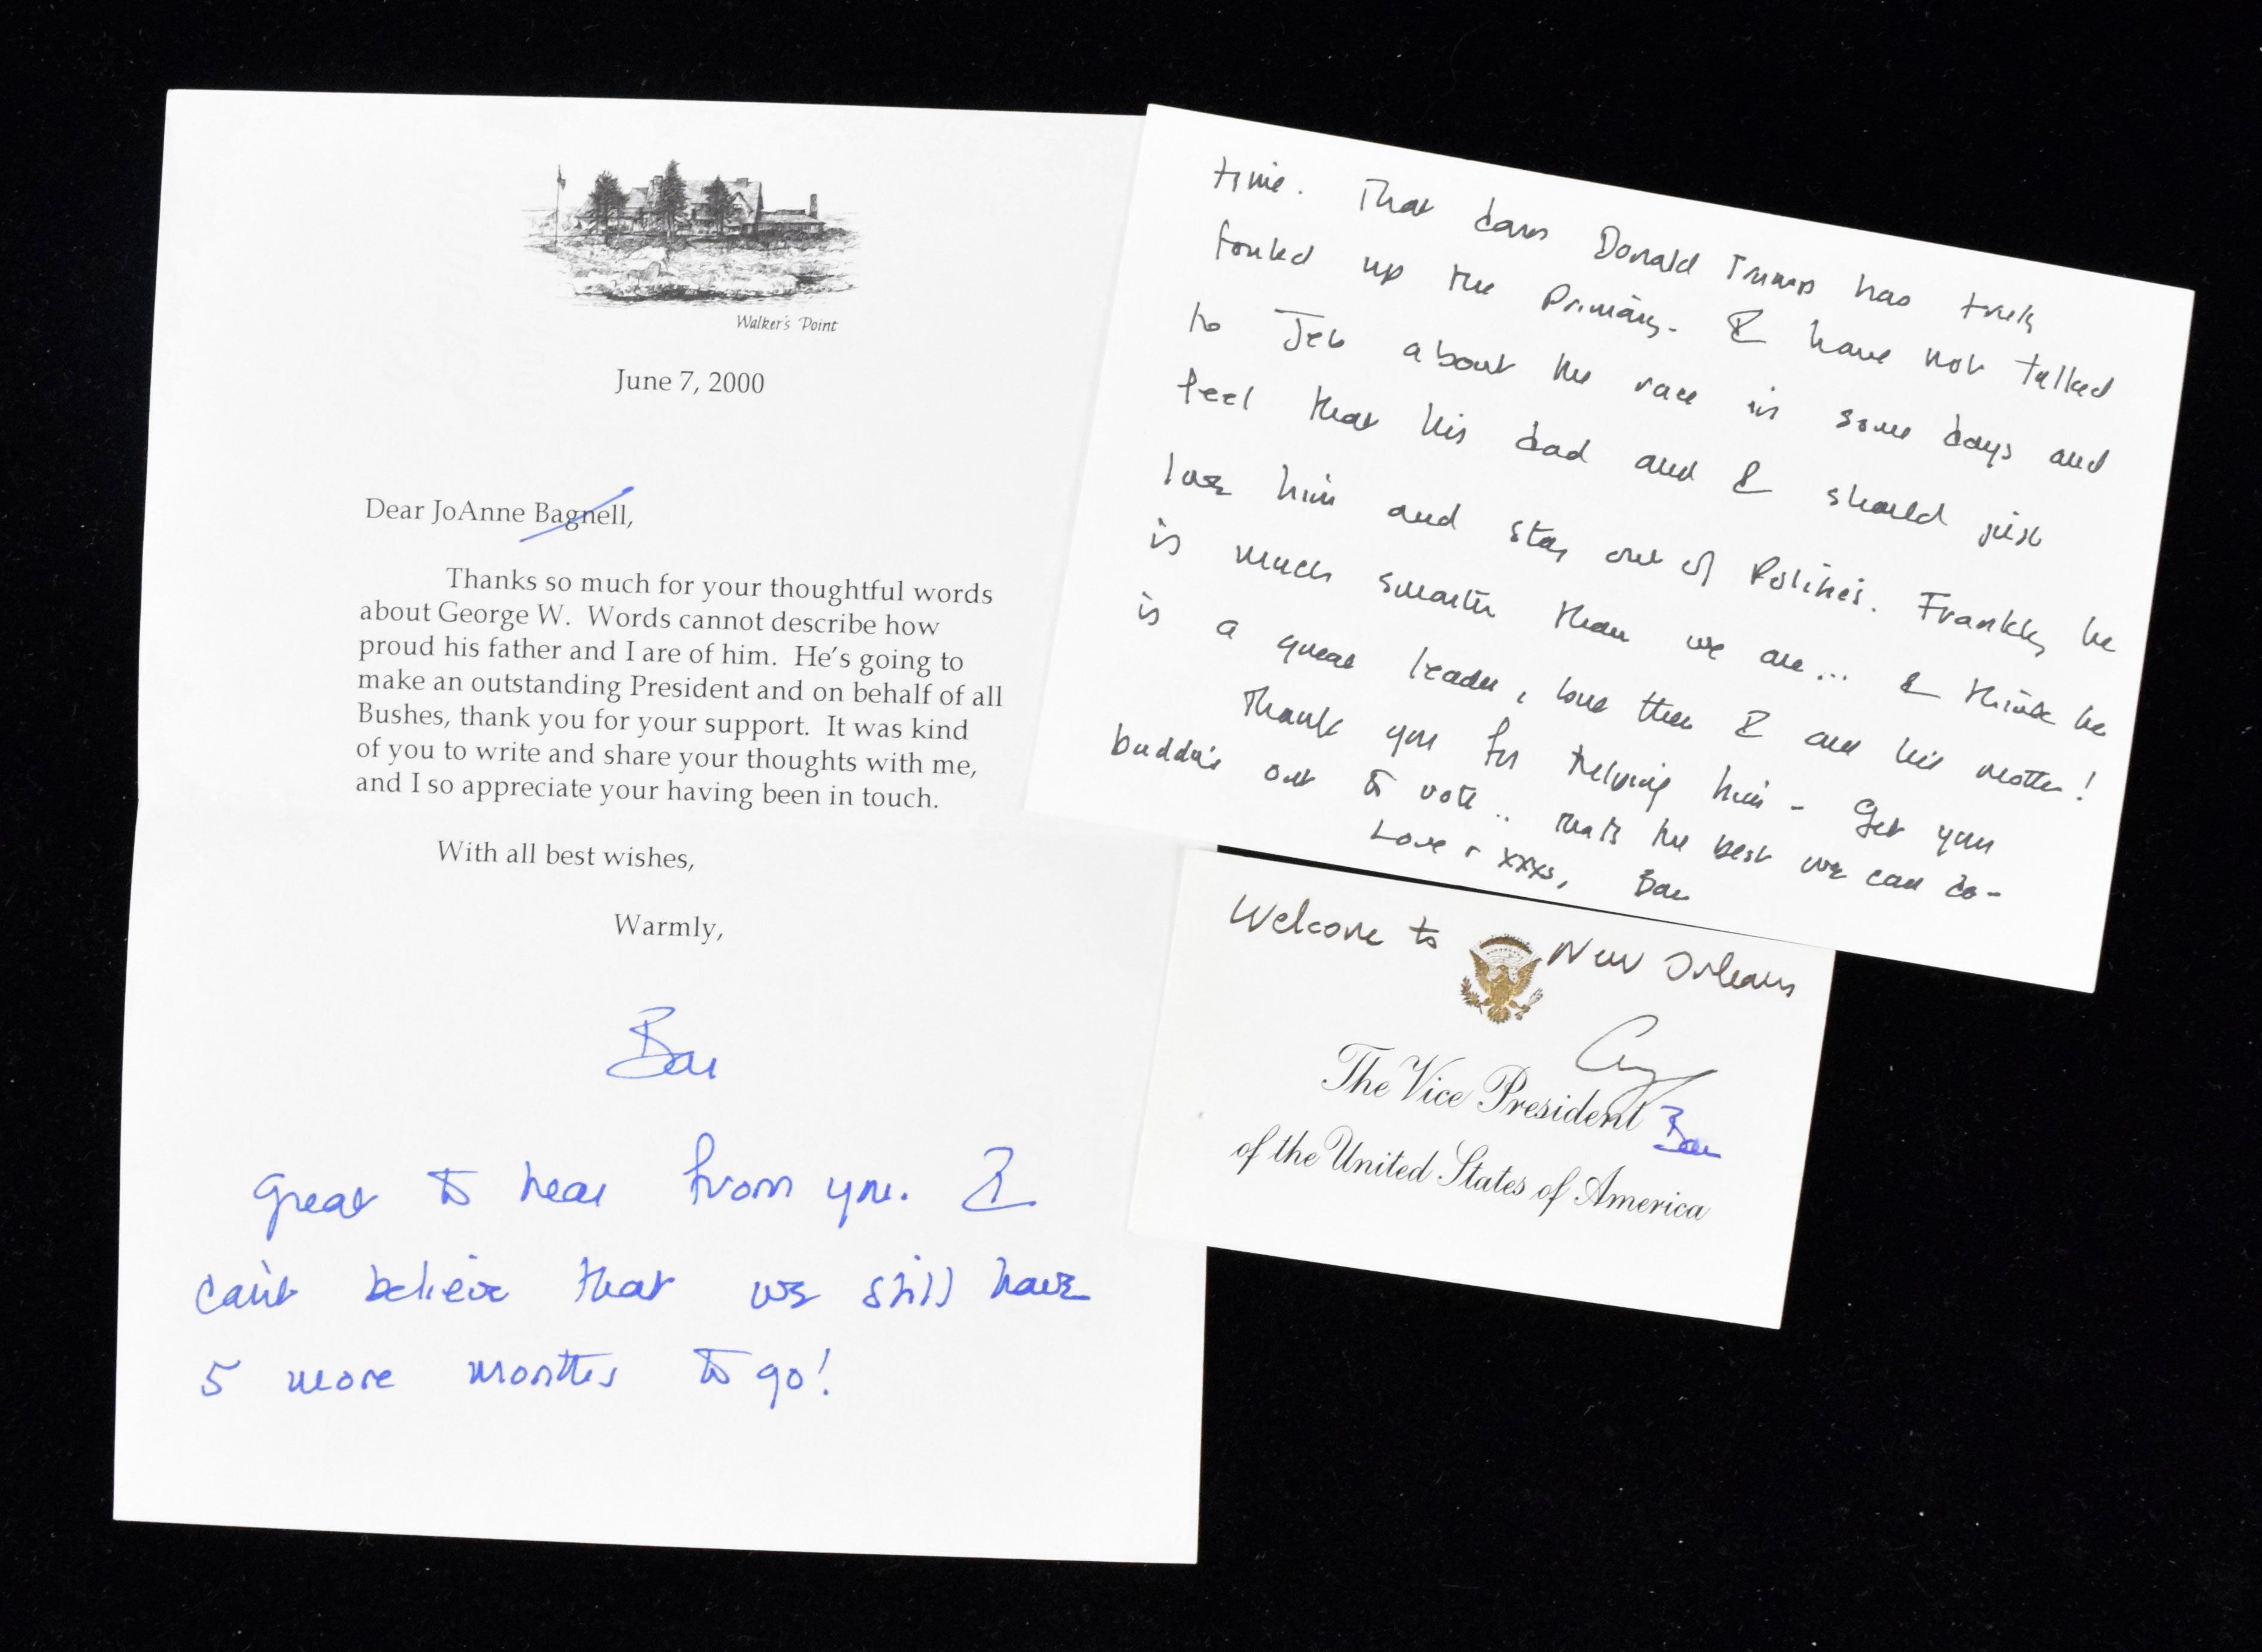 Walker's Point
June 7, 2000
Dear JoAnne Bagnell,
Thanks so much for your thoughtful words
about George W. Words cannot describe how
proud his father and I are of him. He's going to
make an outstanding President and on behalf of all
Bushes, thank you for your support. It was kind
of you to write and share your thoughts with me,
and I so appreciate your having been in touch.
With all best wishes,
Warmly,
Bar
great to hear from you. I
can't believe that we still have
5 more months to go!
time. That darn Donald Trump has truly
fouled up the Primary. I have not talked
to Jeb about the race in some days and
feel that his dad and I should just
love him and stay out of Politics. Frankly he
is much smarter than we are... I think he
is a great leader, but then I am his mother!
Thank you for helping him - Get your
buddies out to vote.. that's the best we can do-
Love + xxxs, Bar
Welcome to New Orleans
The Vice President
Bar
of the United States of America